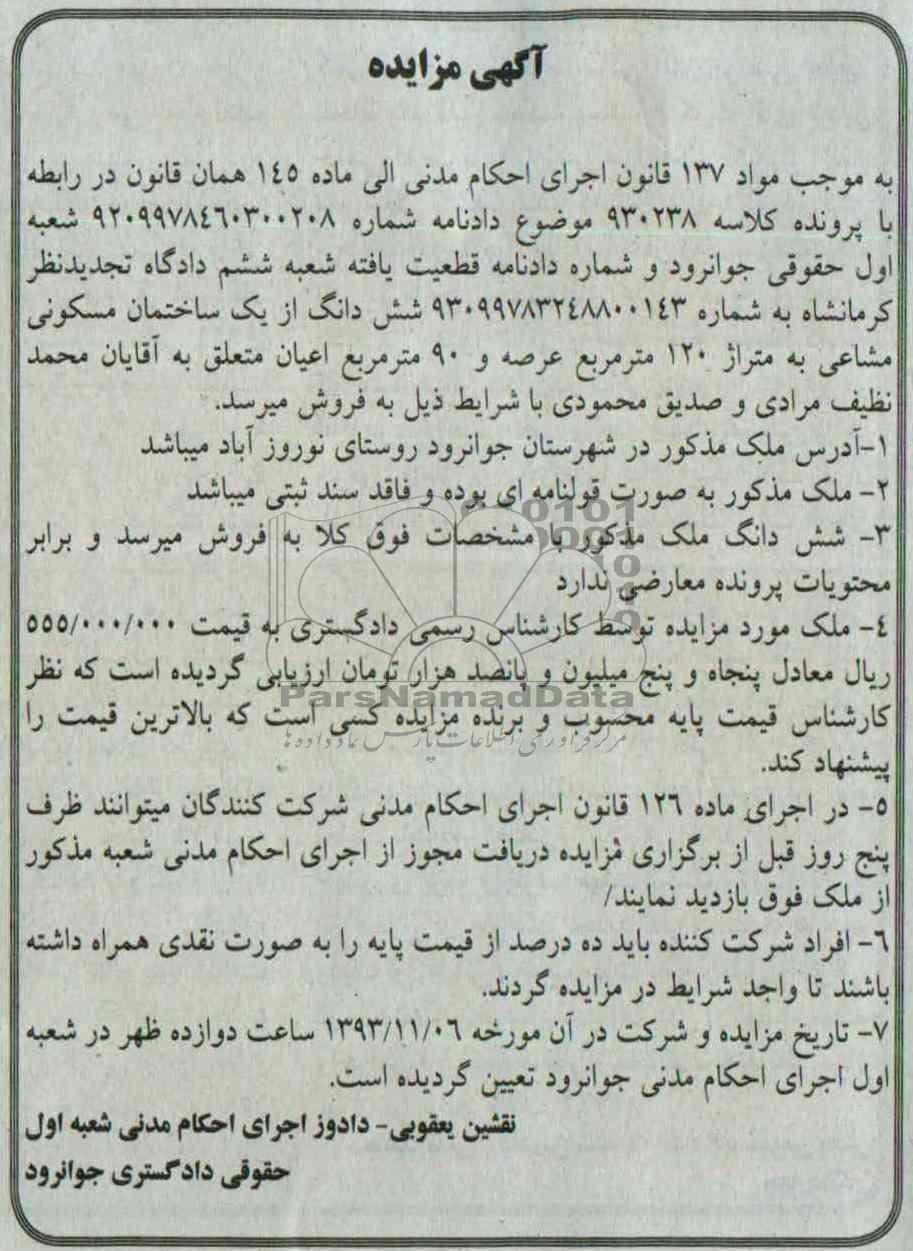 آگهی مزایده
به موجب مواد ۱۳۷ قانون اجرای احکام مدنی الی ماده ۱٤۵ همان قانون در رابطه
با پرونده کلاسه ۹۳۰۲۳۸ موضوع دادنامه شماره ۹۲۰۹۹۷۸٤٦۰۳۰۰۲۰۸ شعبه
اول حقوقی جوانرود و شماره دادنامه قطعیت یافته شعبه ششم دادگاه تجدیدنظر
کرمانشاه به شماره ۹۳۰۹۹۷۸۳۲٤۸۸۰۰۱٤۳ شش دانگ از یک ساختمان مسکونی
مشاعی به متراژ ۱۲۰ مترمربع عرصه و ۹۰ مترمربع اعیان متعلق به آقایان محمد
نظیف مرادی و صدیق محمودی با شرایط ذیل به فروش میرسد.
۱-آدرس ملک مذکور در شهرستان جوانرود روستای نوروز آباد میباشد
۲- ملک مذکور به صورت قولنامه ای بوده و فاقد سند ثبتی میباشد
۳- شش دانگ ملک مذکور با مشخصات فوق کلا به فروش میرسد و برابر
محتویات پرونده معارضی ندارد
٤- ملک مورد مزایده توسط کارشناس رسمی دادگستری به قیمت ۵۵۵/۰۰۰/۰۰۰
ریال معادل پنجاه و پنج میلیون و پانصد هزار تومان ارزیابی گردیده است که نظر
کارشناس قیمت پایه محسوب و برنده مزایده کسی است که بالاترین قیمت را
پیشنهاد کند.
۵- در اجرای ماده ۱۲٦ قانون اجرای احکام مدنی شرکت کنندگان میتوانند ظرف
پنج روز قبل از برگزاری مزایده دریافت مجوز از اجرای احکام مدنی شعبه مذکور
از ملک فوق بازدید نمایند/
٦- افراد شرکت کننده باید ده درصد از قیمت پایه را به صورت نقدی همراه داشته
باشند تا واجد شرایط در مزایده گردند.
۷- تاریخ مزایده و شرکت در آن مورخه ۱۳۹۳/۱۱/۰٦ ساعت دوازده ظهر در شعبه
اول اجرای احکام مدنی جوانرود تعیین گردیده است.
نقشین یعقوبی- دادوز اجرای احکام مدنی شعبه اول
حقوقی دادگستری جوانرود
ParsNamadData